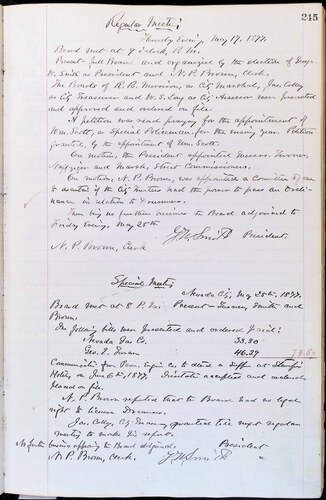 245
Regular Meeting
Thursday Evening, May 17, 1877.
Board met at 8 o'clock, P.M.
Present full Board and organized by the election of George
W. Smith as President and N. P. Brown, Clerk.
The Bonds of R. B. Moening, as City Marshal, Jas. Colley
as City Treasurer and W. S. as City Assessor were presented
and approved and ordered on file.
A petition was read praying for the appointment of
Wm. Scott, as Special Policeman, for the ensuing year. Petition
granted, by the appointment of Wm. Scott.
On motion, the President appointed Messrs. Turner,
Naffziger and Marsh, Street Commissioners.
On motion, N. P. Brown, was appointed a Committee of one
to ascertain if the City Trustees had the power to pass an Ordi-
nance in relation to Drummers.
There being no further business the Board adjourned to
Friday Evening, May 25th
Geo. W. Smith President.
N. P. Brown, Clerk
Special Meeting
Nevada City, May 25th, 1877.
Board met at 8 P.M. Present Turner, Smith and
Brown.
The following bills were presented and ordered paid:
Nevada Gas Co. 33.30
Geo. E. Turner 46.37
Communication from Penn. Engine Co. to attend a Supper at
Hotel on June 6th, 1877. Invitation accepted and ordered
placed on file.
N. P. Brown reported that the Board had no legal
right to license Drummers.
Jas. Colley, City Treasurer granted time next regular
meeting to make his report.
No further business appearing the Board adjourned.
Geo. W. Smith President
N. P. Brown, Clerk.